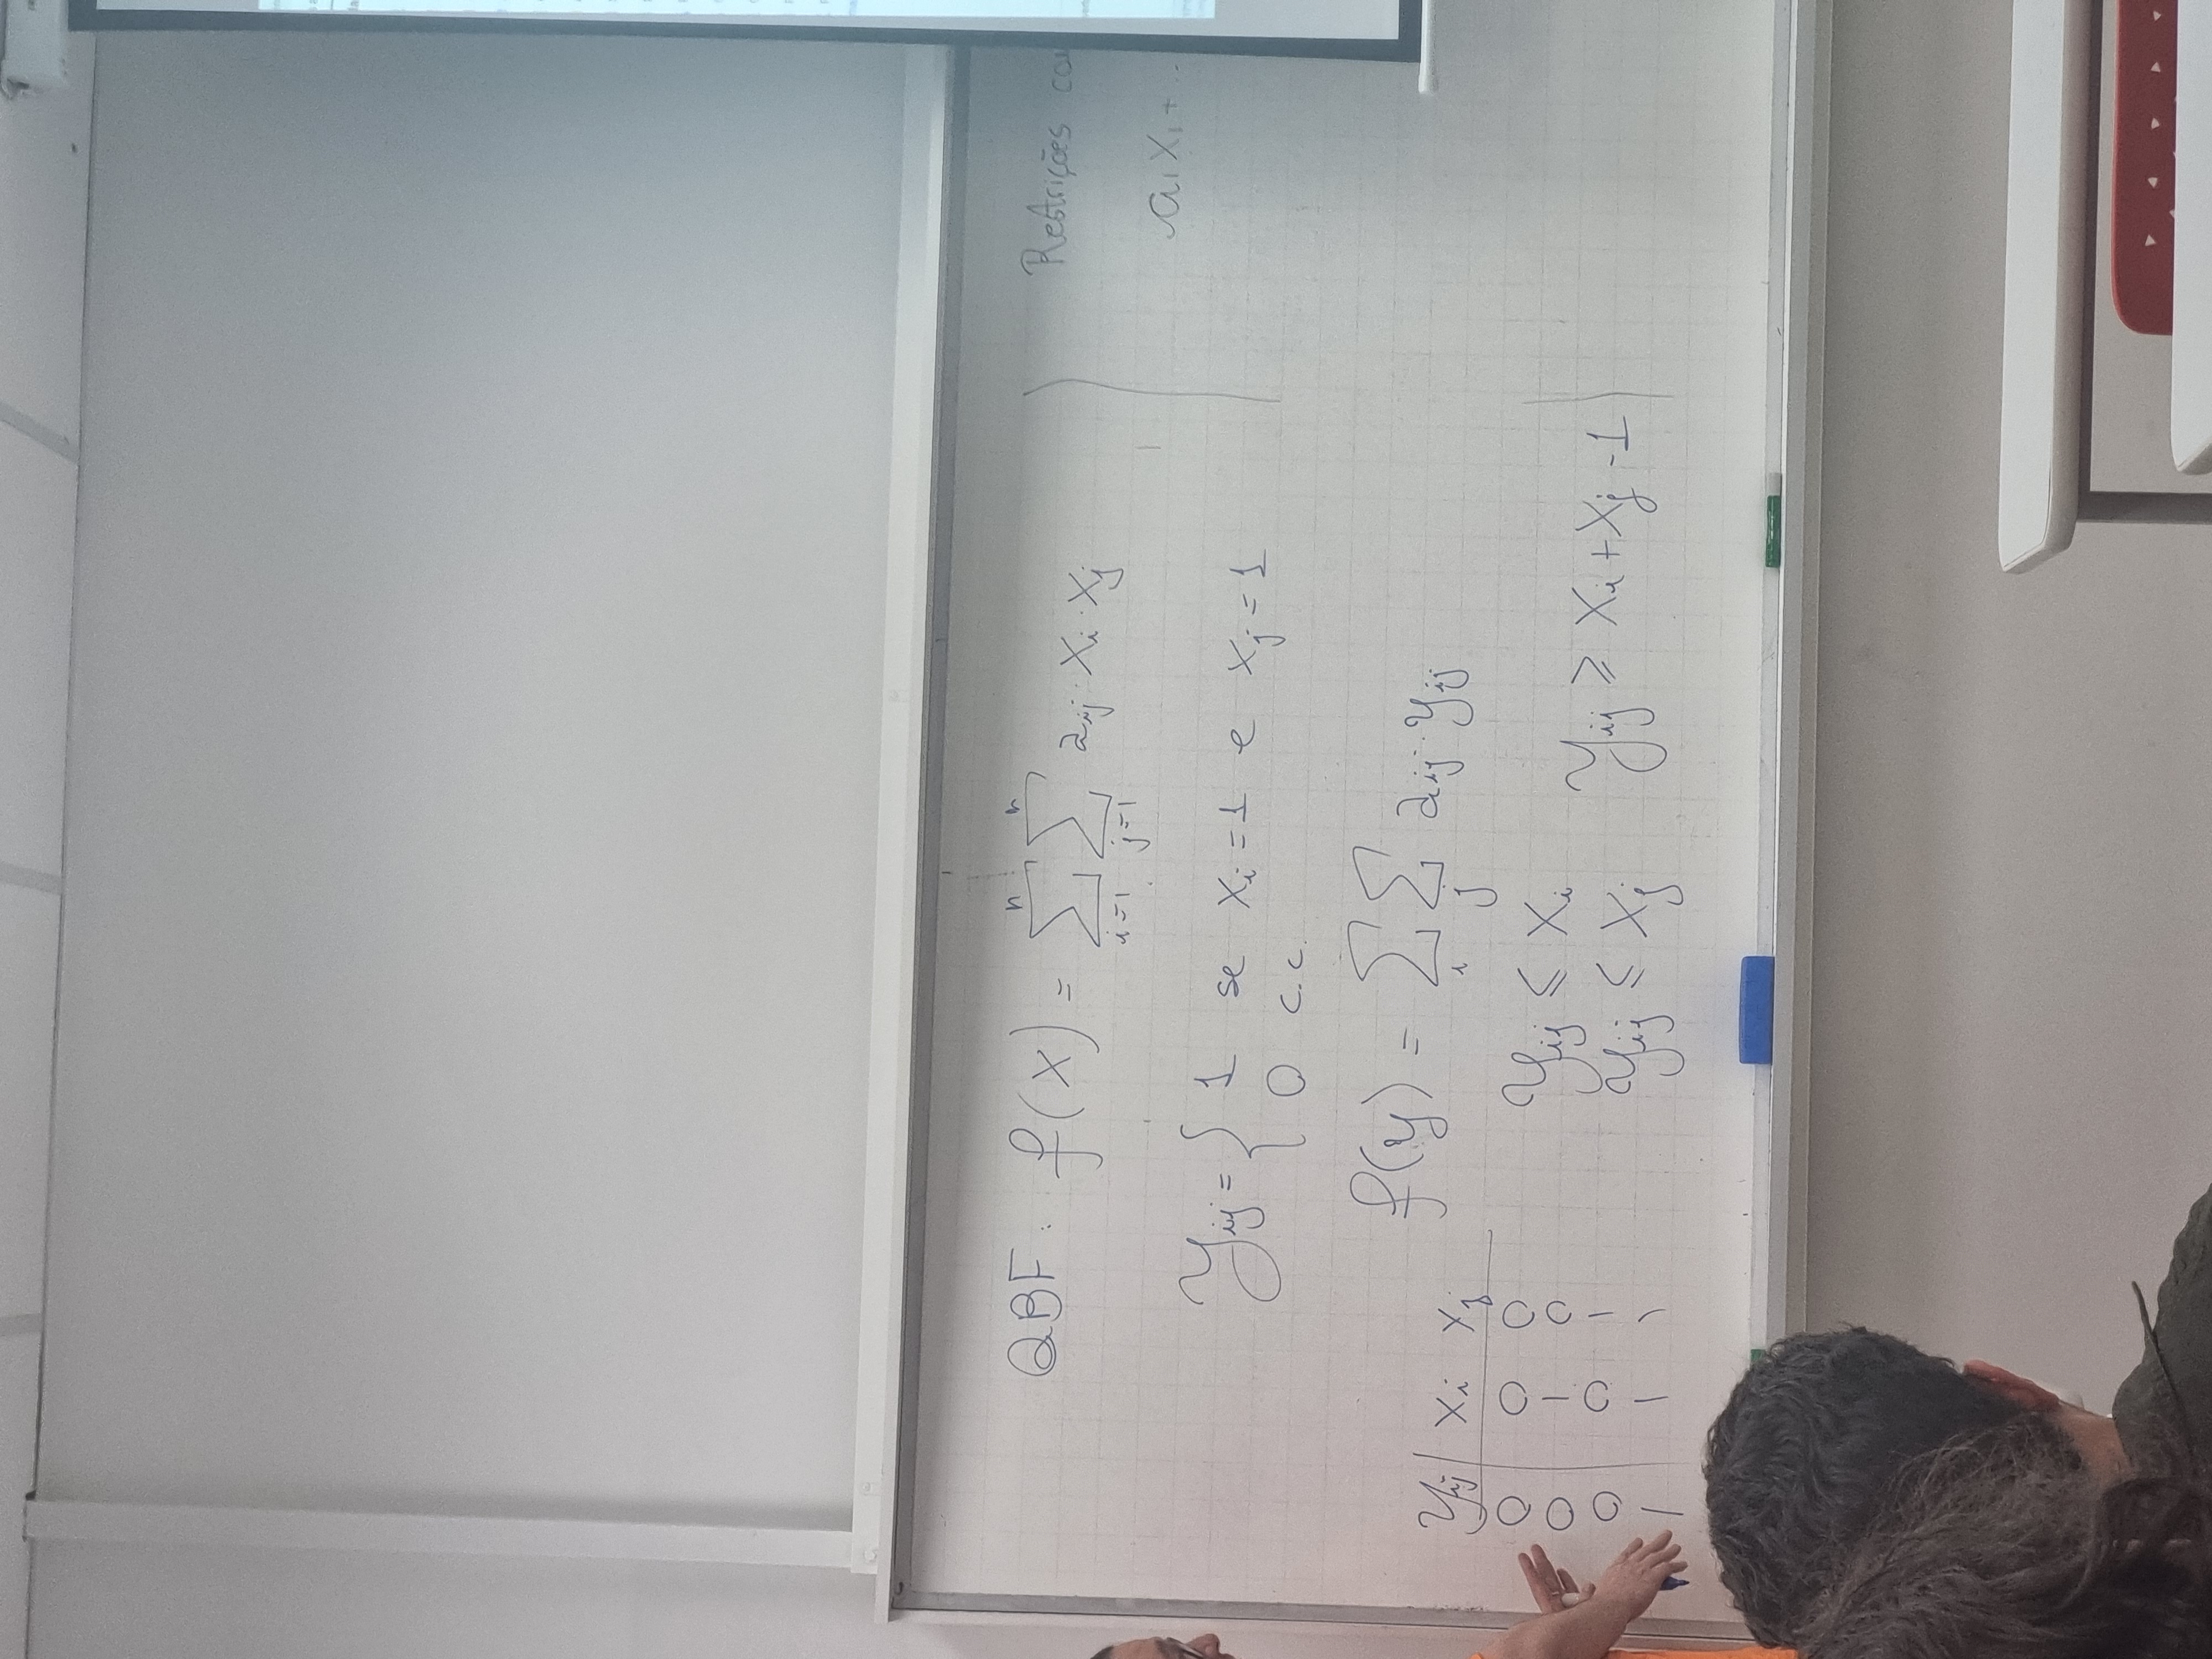 QBF: f(x) = ∑_{i=1}^{n} ∑_{j=1}^{n} aij · xi · xj
yij = { 1 se xi = 1 e xj = 1
0 c.c.
f(y) = ∑_i ∑_j aij · yij
yij | xi xj
0 | 0 0
0 | 1 0
0 | 0 1
1 | 1 1
yij ≤ xi
yij ≤ xj
yij ≥ xi + xj - 1
Restrições
a1x1 + ..